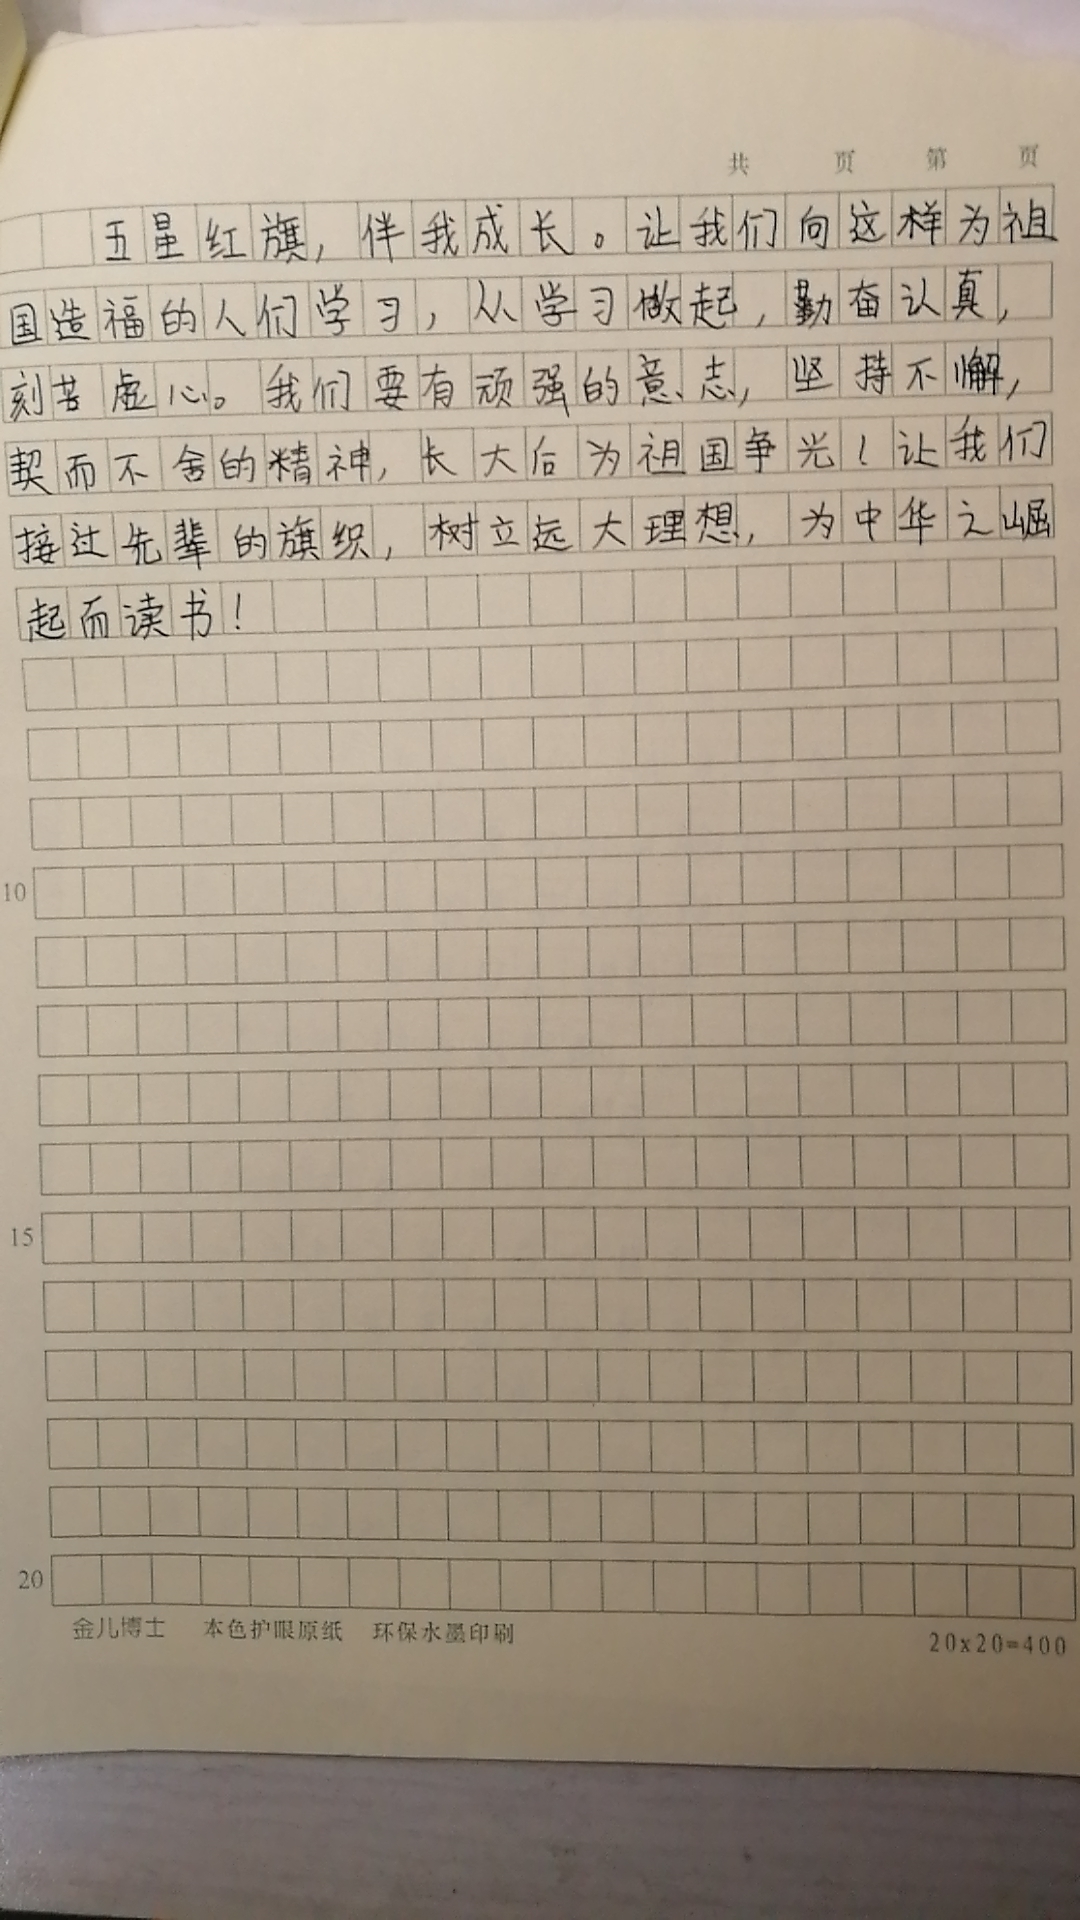 共 页 第 页
五星红旗，伴我成长。让我们向这样为祖
国造福的人们学习，从学习做起，勤奋认真，
刻苦虚心。我们要有顽强的意志，坚持不懈，
契而不舍的精神，长大后为祖国争光！让我们
接过先辈的旗织，树立远大理想，为中华之崛
起而读书！
10
15
20
金儿博士 本色护眼原纸 环保水墨印刷
20x20=400